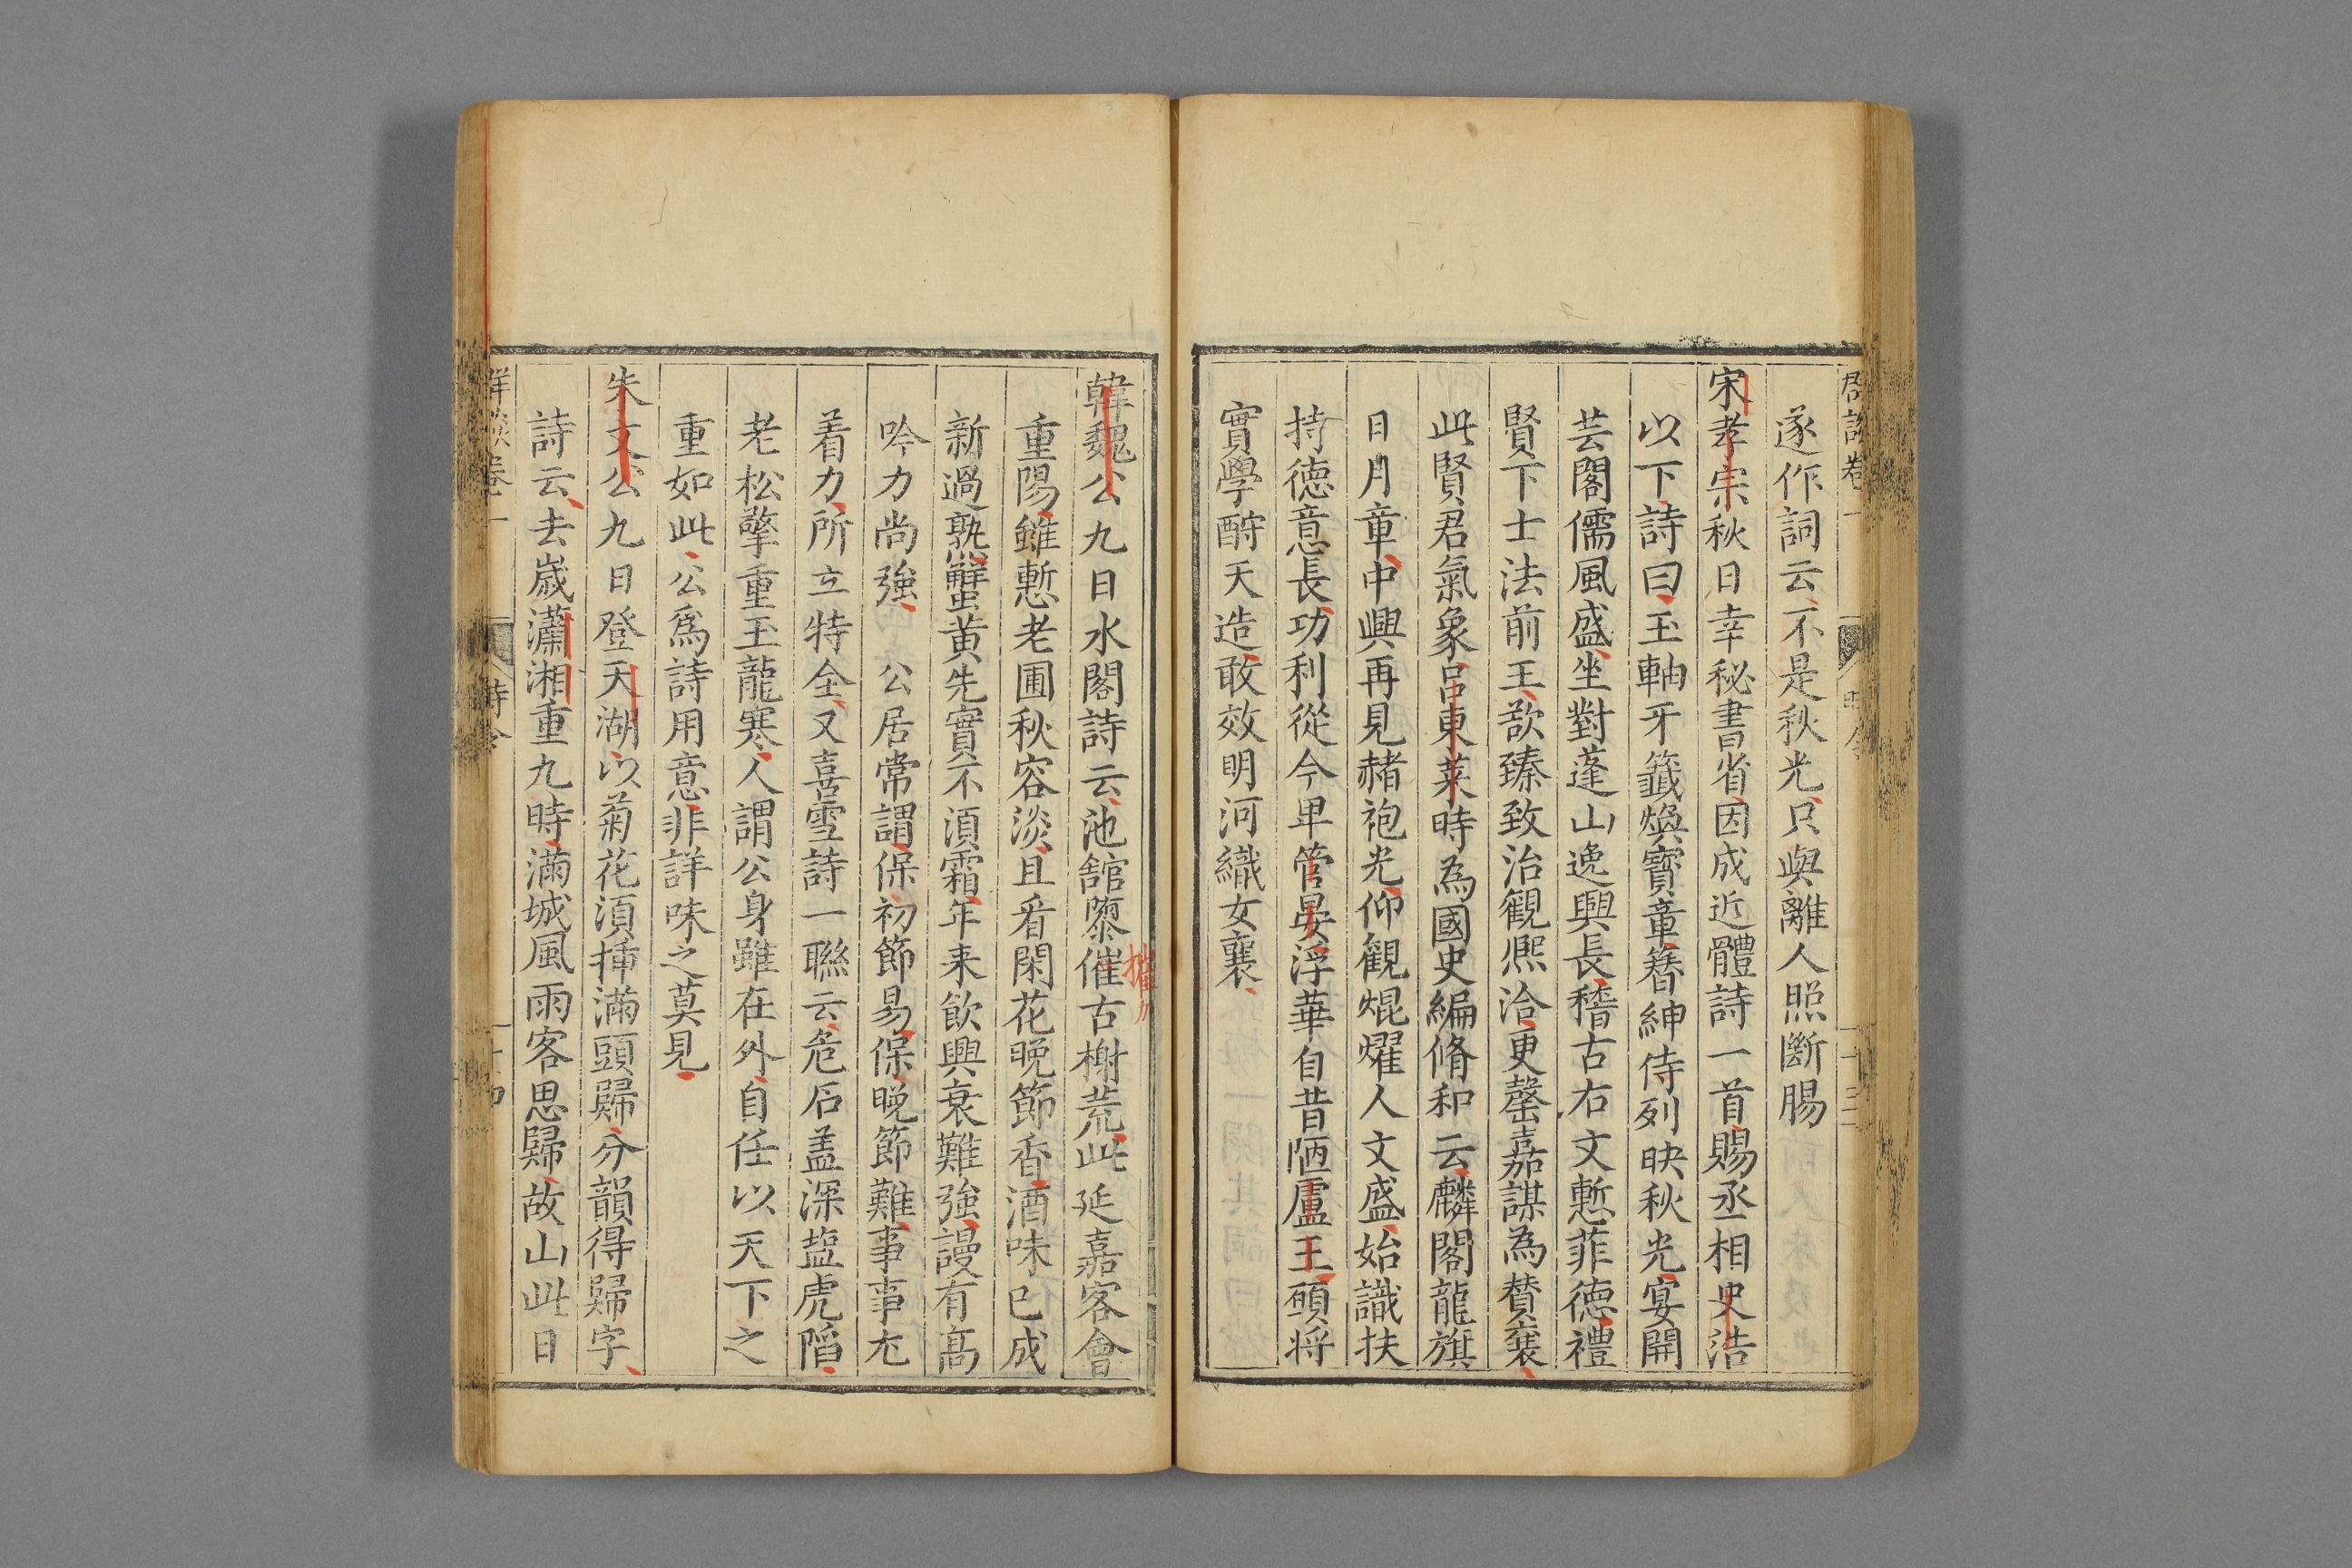 遂作詞云不是秋光只與離人照斷腸
宋孝宗秋日幸秘書省因成近體詩一首賜丞相史浩
以下詩曰玉軸牙籤煥寶章簪紳侍列映秋光宴開
芸閣儒風盛坐對蓬山逸興長稽古右文慙菲德禮
賢下士法前王欲臻致治觀熈洽更罄嘉謀為賛襄
此賢君氣象呂東莱時為國史編脩和云麟閣龍旗
日月章中興再見赭袍光仰觀焜燿人文盛始識扶
持德意長功利從今卑管晏浮華自昔陋盧王願将
實學酧天造敢效明河織女襄
韓魏公九日水閣詩云池舘隳催古榭荒此延嘉客會
摧
重陽雖慙老圃秋容淡且看閑花晚節香酒味已成
新過熟蟹黄先實不湏霜年来飲興衰難強謾有高
吟力尚強公居常謂保初節易保晚節難事事尤
着力所立特全又喜雪詩一聯云危石盖深塩虎陷
老松擎重玉龍寒人謂公身雖在外自任以天下之
重如此公爲詩用意非詳味之莫見
朱文公九日登天湖以菊花湏揷滿頭歸分韻得歸字
詩云去歳瀟湘重九時滿城風雨客思歸故山此日